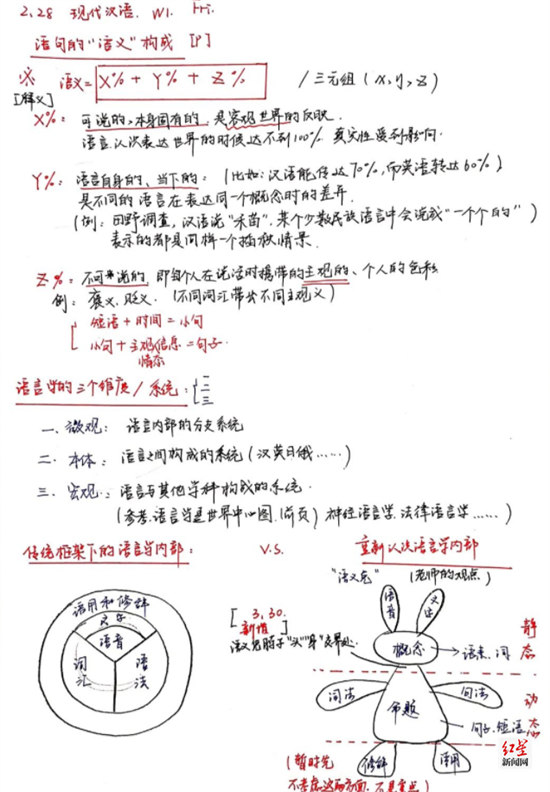 2.28 现代汉语. W1. Fri.
语句的“语义”构成 [P]
※ 语义= X% + Y% + Z% / 三元组 (x, y, z)
[释义]
X%: 可说的、本身固有的, 是客观世界的反映.
语言认识表达世界的时候达不到100%, 真实性受到影响.
Y%: 语言自身的、当下的: (比如: 汉语能传达70%, 而英语转达60%)
是不同的语言在表达同一个概念时的差异.
(例: 田野调查, 汉语说“禾苗”, 某个少数民族语言中会说成“一个个的”)
表示的都是同样一个插秧情景.
Z%: 不可说的, 即每个人在说话时携带的主观的、个人的色彩
例: 褒义、贬义. (不同词汇带出不同主观义)
短语+时间=小句
小句+主观信息=句子.
情态
语言学的三个维度/系统: 一 二 三
一. 微观: 语言内部的分支系统
二. 本体: 语言之间构成的系统 (汉英日俄……)
三. 宏观: 语言与其他学科构成的系统.
(参考语言学是世界中心图. (前页) 神经语言学. 法律语言学……)
传统框架下的语言学内部: V.S. 重新认识语言学内部
“语义兔” (老师的观点)
语用和修辞
文字
语音
词汇
语法
[3.30. 新增]
语音
文字
概念 → 语素、词
静态
词法
句法
命题
句子. 短语
动态
修辞
语用
(暂时先
不考虑这两方面, 不是重点)
红星
新闻网